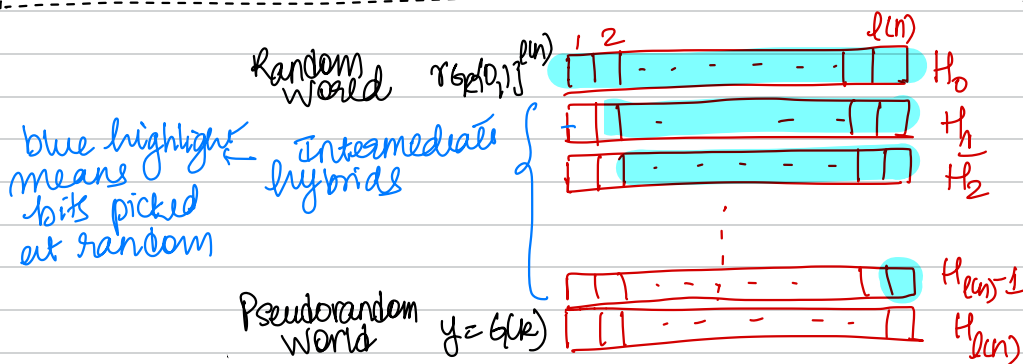 1 2 l(n)
Random World r ∈R {0,1}^l(n) H₀
H₁
blue highlight means bits picked at random
Intermediate hybrids
H₂
H_l(n)-1
Pseudorandom World y = G(k) H_l(n)